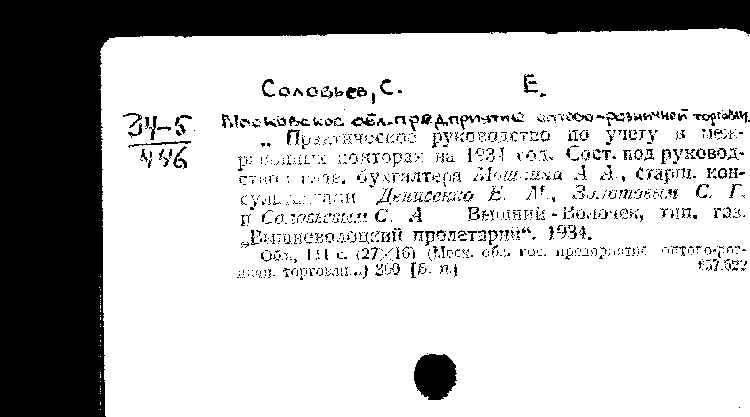 Соловьев, С. Е.
34-5
446
Московское обл. предприятие оптово-розничной торговли
„ Практическое руководство по учету в меж-
районных конторах на 1934 год. Сост. под руковод-
ством глав. бухгалтера А А., старш. кон-
сультантами Денисенко Е. М., Золотовым С. Г.
и Соловьевым С. А Вышний-Волочек, тип. газ.
„Вышневолоцкий пролетарий“. 1934.
Обл., 111 с. (27×16) (Моск. обл. гос. предприятие оптого-роз-
ничн. торговли..) 300 [б. п.]